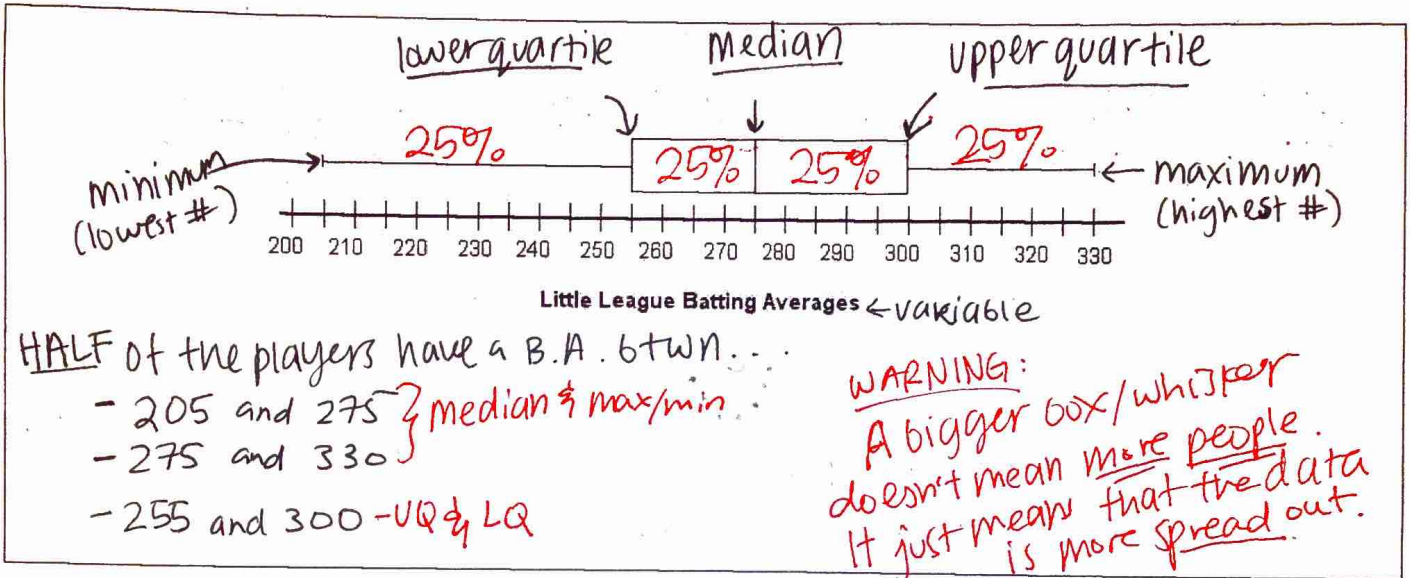 lower quartile
median
upper quartile
25%
25%
25%
25%
minimum
(lowest #)
maximum
(highest #)
200 210 220 230 240 250 260 270 280 290 300 310 320 330
Little League Batting Averages ← variable
HALF of the players have a B.A. btwn...
- 205 and 275 } median & max/min
- 275 and 330
- 255 and 300 - UQ & LQ
WARNING:
A bigger box/whisker
doesn't mean more people.
It just means that the data
is more spread out.